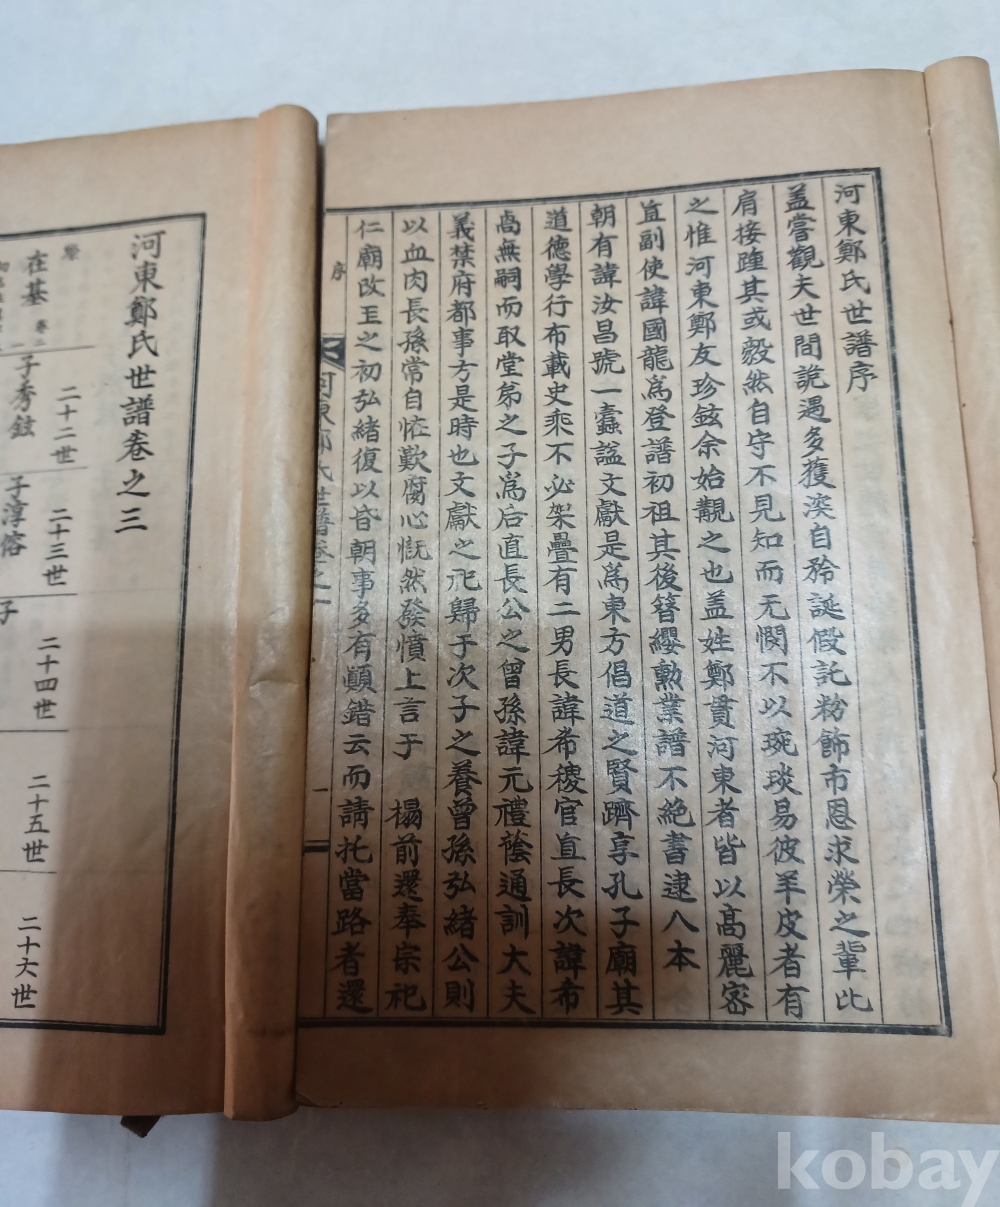 河東鄭氏世譜序
盖嘗觀夫世間詭遇多獲深自矜誕假託粉飾市恩求榮之輩比
肩接踵其或毅然自守不見知而无憫不以琬琰易彼羊皮者有
之惟河東鄭友珍鉉余始覯之也盖姓鄭貫河東者皆以高麗密
直副使諱國龍爲登譜初祖其後簪纓勲業譜不絶書逮入本
朝有諱汝昌號一蠹謚文獻是爲東方倡道之賢躋享孔子廟其
道德學行布載史乘不必架疊有二男長諱希稷官直長次諱希
卨無嗣而取堂弟之子爲后直長公之曾孫諱元禮蔭通訓大夫
義禁府都事方是時也文獻之祀歸于次子之養曾孫弘緖公則
以血肉長孫常自怪歎腐心慨然發憤上言于 榻前還奉宗祀
仁廟改玉之初弘緖復以昏朝事多有顚錯云而請托當路者還
序
河東鄭氏世譜卷之一
一
河東鄭氏世譜卷之三
二十二世
二十三世
二十四世
二十五世
二十六世
在基
卷二
子秀鉉
子淳鎔
子
kobay